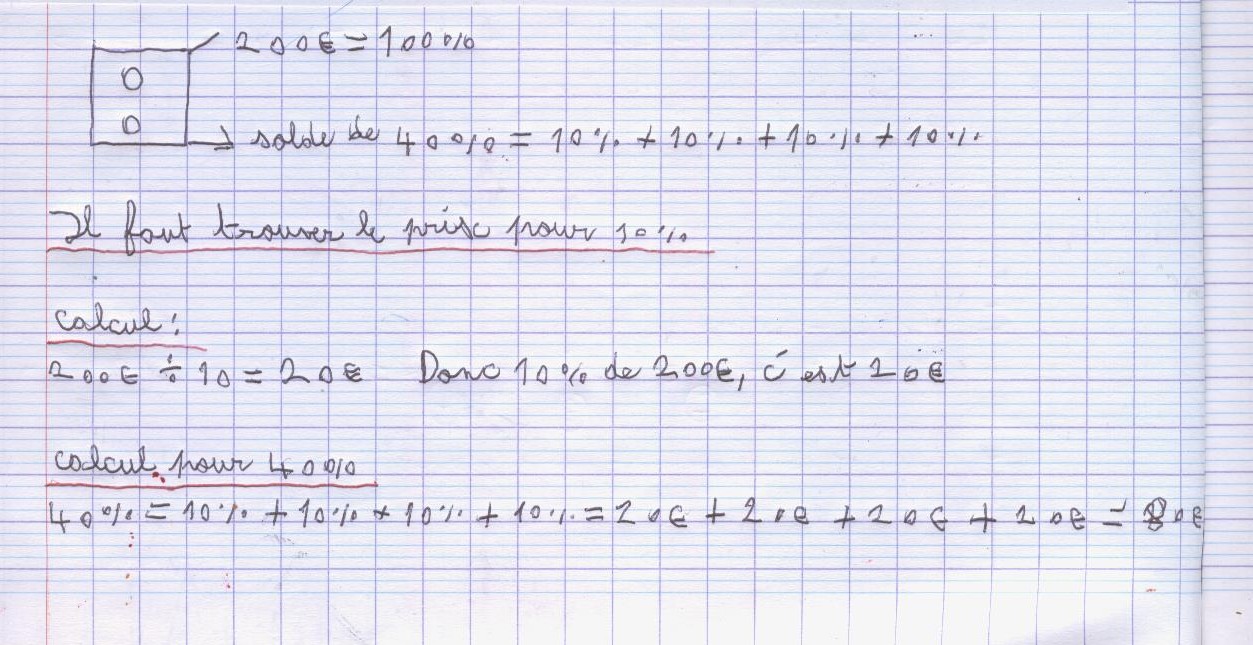 200€ = 100%
solde de 40% = 10% + 10% + 10% + 10%
Il faut trouver le prix pour 10%
calcul :
200€ ÷ 10 = 20€ Donc 10% de 200€, c'est 20€
calcul pour 40%
40% = 10% + 10% + 10% + 10% = 20€ + 20€ + 20€ + 20€ = 80€